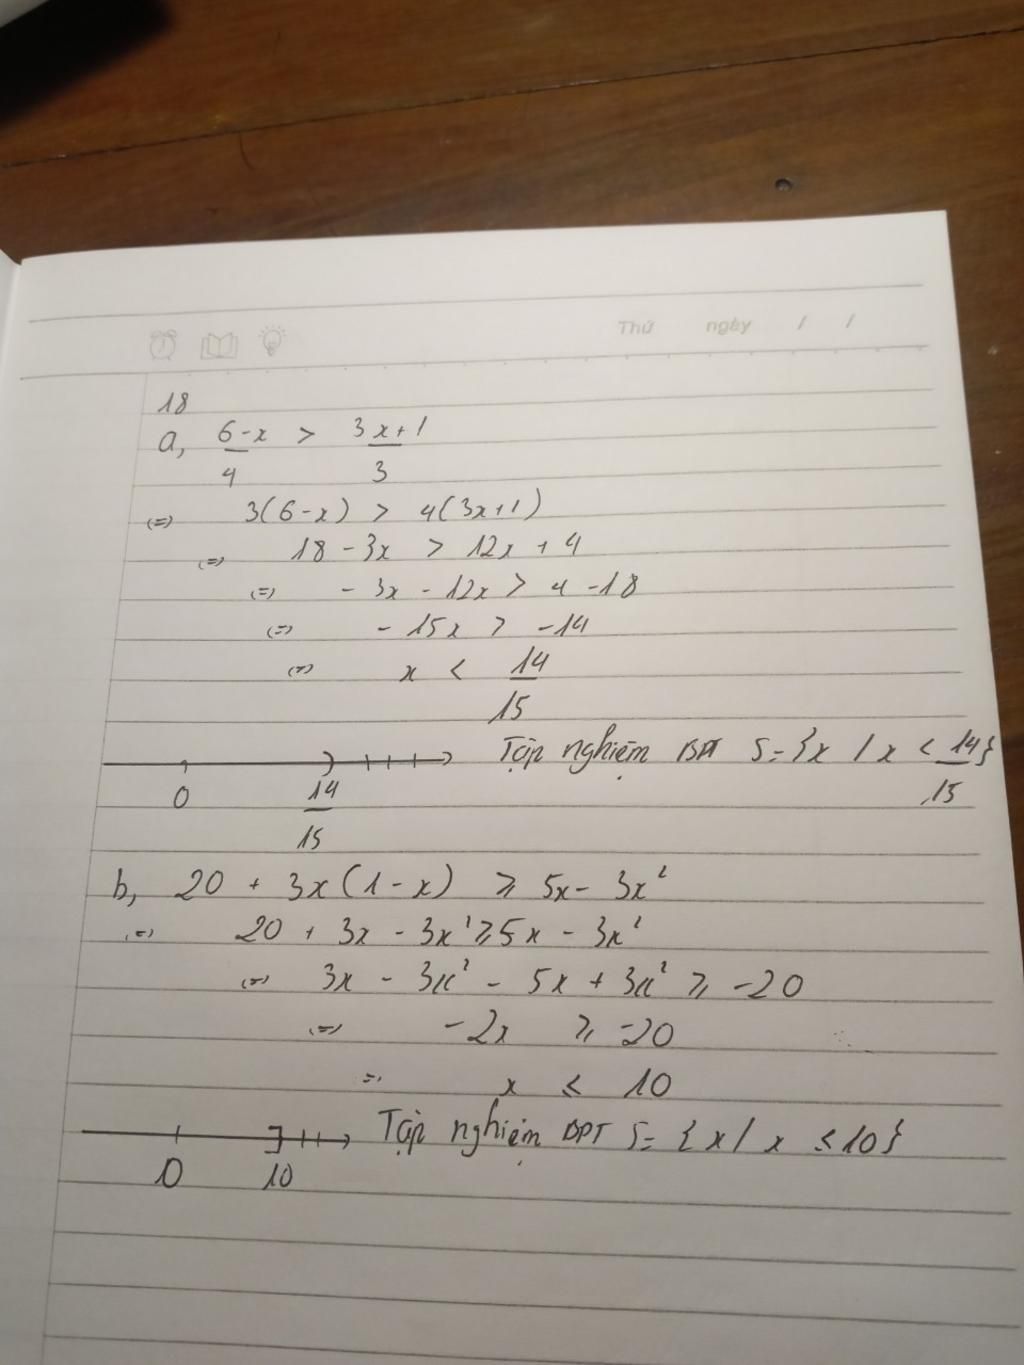 Thứ ngày / /
18
a, 6-x/4 > 3x+1/3
(=) 3(6-x) > 4(3x+1)
(=) 18 - 3x > 12x + 4
(=) - 3x - 12x > 4 - 18
(=) - 15x > -14
(=) x < 14/15
0 14/15 Tập nghiệm BPT S = {x / x < 14/15}
b, 20 + 3x(1-x) ⩾ 5x - 3x²
(=) 20 + 3x - 3x² ⩾ 5x - 3x²
(=) 3x - 3x² - 5x + 3x² ⩾ -20
(=) -2x ⩾ -20
(=) x ⩽ 10
0 10 Tập nghiệm BPT S = {x / x ⩽ 10}